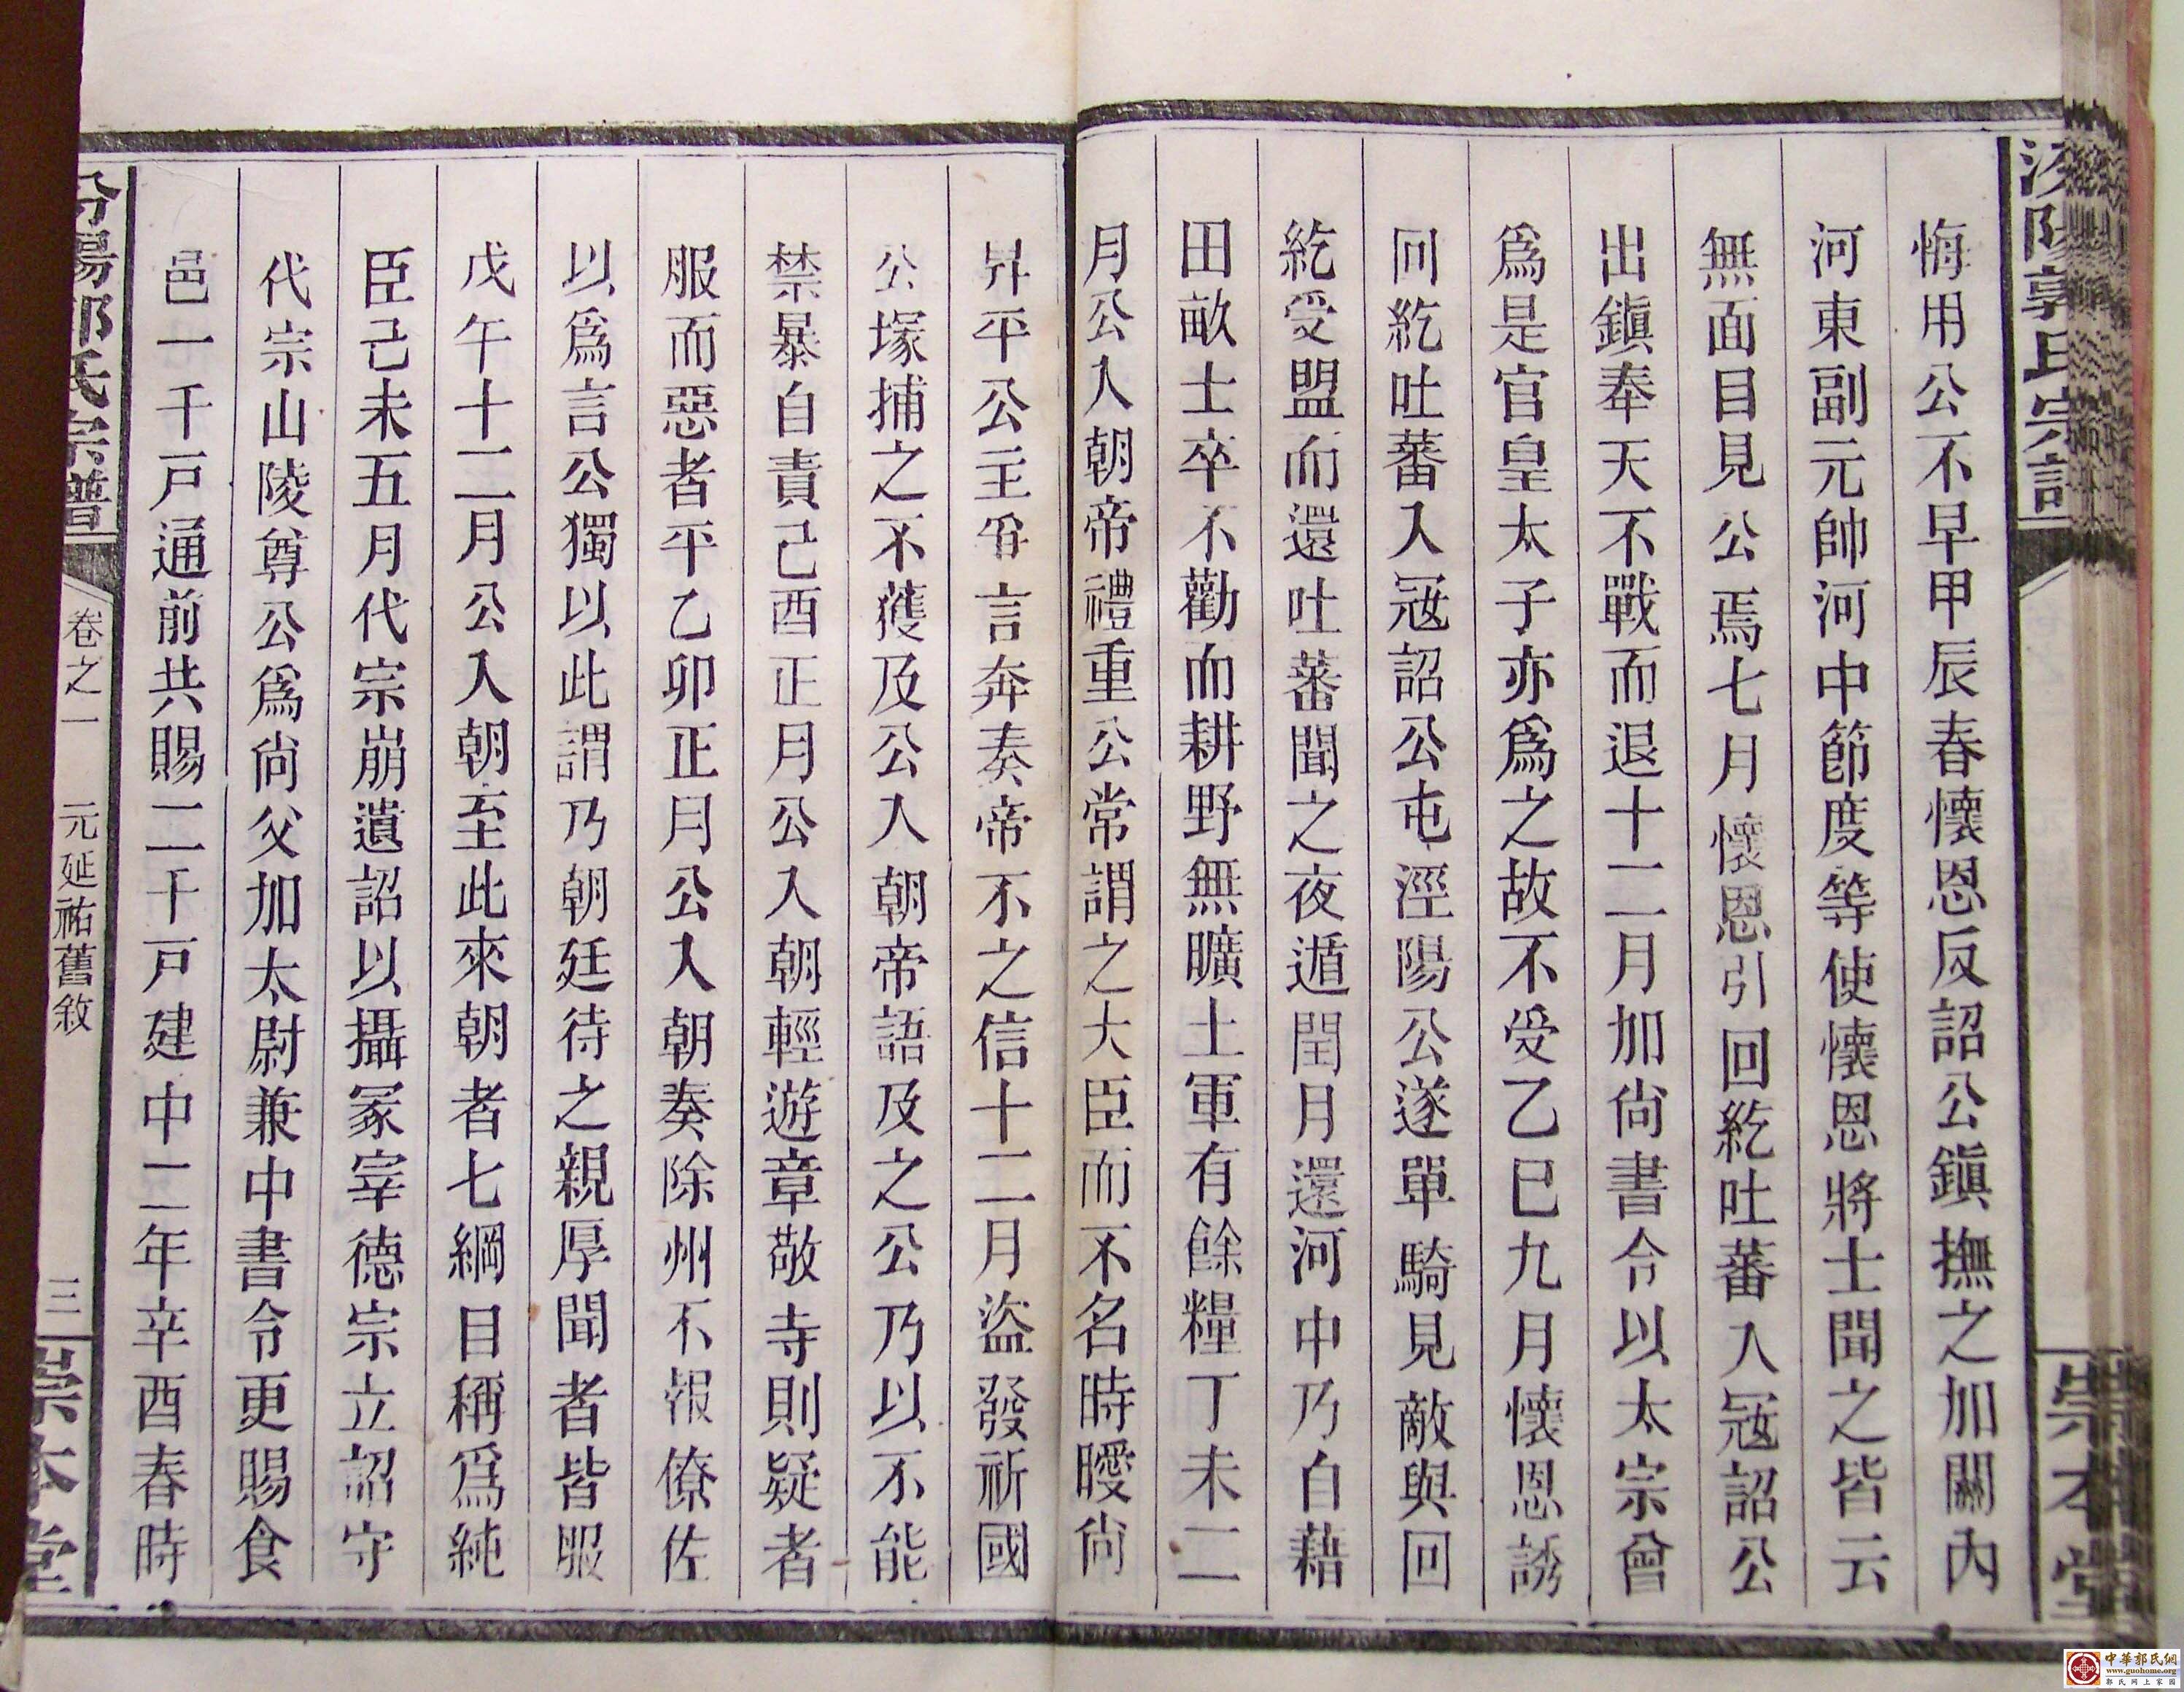 汾陽郭氏宗譜
崇本堂
悔用公不早甲辰春懷恩反詔公鎭撫之加關內
河東副元帥河中節度等使懷恩將士聞之皆云
無面目見公焉七月懷恩引回紇吐蕃入寇詔公
出鎭奉天不戰而退十二月加尙書令以太宗曾
爲是官皇太子亦爲之故不受乙巳九月懷恩誘
回紇吐蕃入寇詔公屯涇陽公遂單騎見敵與回
紇受盟而還吐蕃聞之夜遁閏月還河中乃自藉
田畝士卒不勸而耕野無曠土軍有餘糧丁未二
月公入朝帝禮重公常謂之大臣而不名時曖尙
昇平公主爭言奔奏帝不之信十二月盜發祈國
公塚捕之不獲及公入朝帝語及之公乃以不能
禁暴自責己酉正月公入朝輕遊章敬寺則疑者
服而惡者平乙卯正月公入朝奏除州不報僚佐
以爲言公獨以此謂乃朝廷待之親厚聞者皆服
戊午十二月公入朝至此來朝者七綱目稱爲純
臣己未五月代宗崩遺詔以攝冢宰德宗立詔守
代宗山陵尊公爲尙父加太尉兼中書令更賜食
邑一千戸通前共賜二千戸建中二年辛酉春時
汾陽郭氏宗譜
卷之一
元延祐舊敘
三
崇本堂
中華郭氏網
www.guohome.org
郭氏网上家园